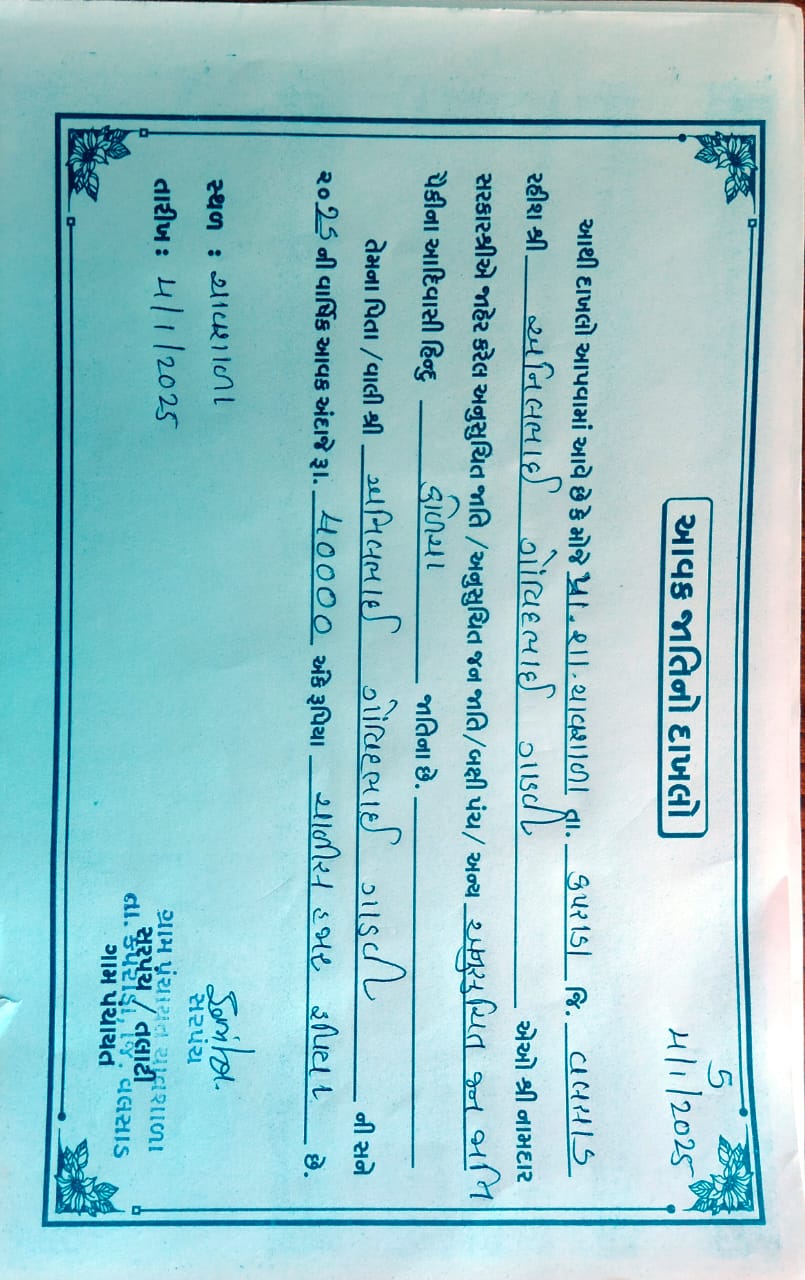 5
૫/૧/2025
આવક જાતિનો દાખલો
આથી દાખલો આપવામાં આવે છે કે મોજે પ્રા. શા. ચાવશાળા તા. કપરાડા જિ. વલસાડ
રહીશ શ્રી અનિલભાઈ ગોવિંદભાઈ ગાઈન એઓ શ્રી નામદાર
સરકારશ્રીએ જાહેર કરેલ અનુસુચિત જાતિ / અનુસુચિત જન જાતિ / બક્ષી પંચ / અન્ય અનુસુચિત જન જાતિ
પૈકીના આદિવાસી હિન્દુ જાતિના છે.
તેમના પિતા / વાલી શ્રી અનિલભાઈ ગોવિંદભાઈ ની સને
૨૦25 ની વાર્ષિક આવક અંદાજે રૂા. ૪૦૦૦૦ અંકે રૂપિયા ચાલીસ હજાર રૂપિયા છે.
સ્થળ : ચાવશાળા
તારીખ : ૫/૧/2025
સરપંચ
ગ્રામ પંચાયત ચાવશાળા
સરપંચ / તલાટી
તા. કપરાડા, જિ. વલસાડ
ગામ પંચાયત